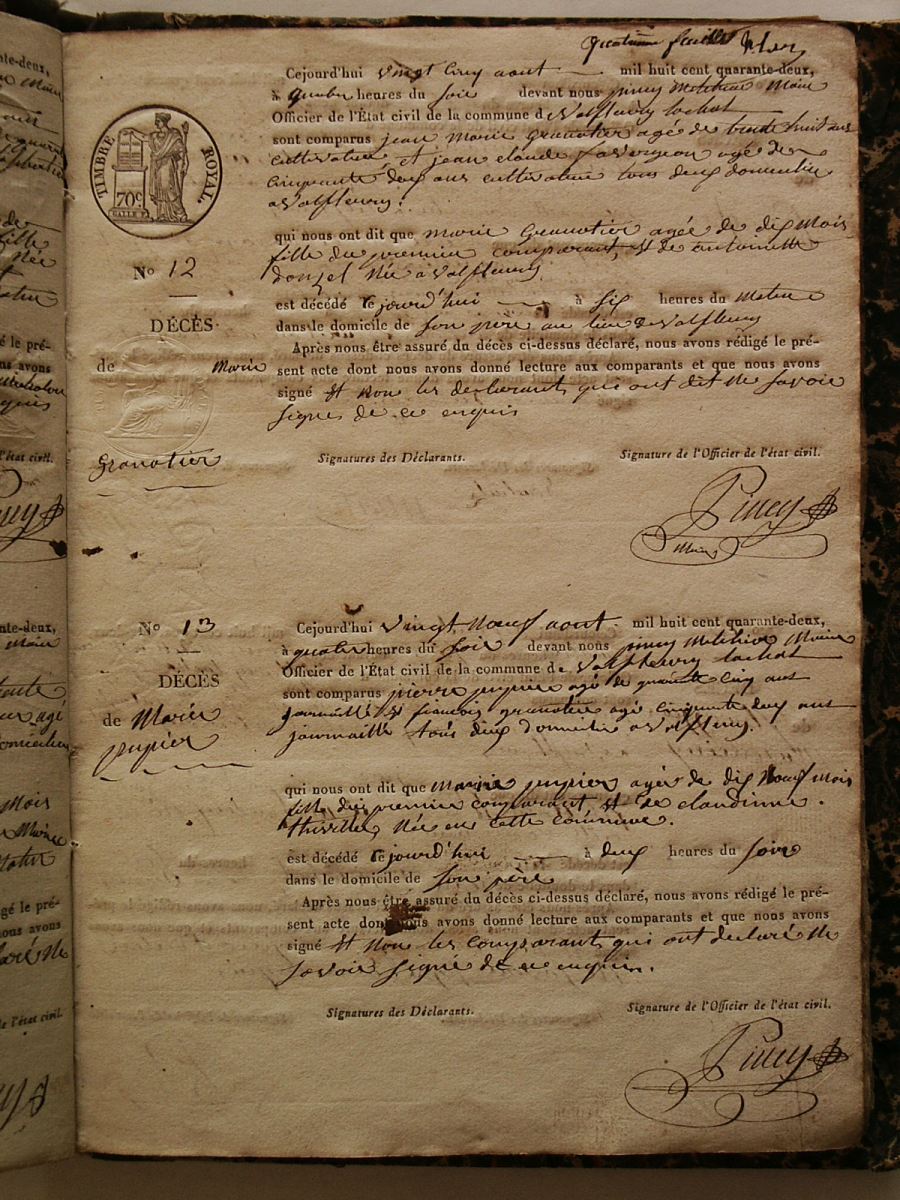 quatrième feuillet
Cejourd'hui vingt cinq aout mil huit cent quarante-deux,
à quatre heures du soir devant nous piney Melchior Maire
Officier de l'État civil de la commune de Valfleury lachat
sont comparus jean Marie granotier agé de trente huit ans
cultivateur et jean claude faverjon agé de
cinquante deux ans cultivateur tous deux domiciliés
a Valfleury.
TIMBRE ROYAL.
70c.
qui nous ont dit que marie Granotier agée de dix Mois
fille du premier comparant, et de antoinette
donzel Née a Valfleury
No 12
est décédé cejourd'hui à six heures du Matin
dans le domicile de son père au lieu de Valfleury
DÉCÈS
de Marie
Granotier
Après nous être assuré du décès ci-dessus déclaré, nous avons rédigé le pré-
sent acte dont nous avons donné lecture aux comparants et que nous avons
signé et Non les declarants, qui ont dit Ne savoir
signer de ce enquis
Signatures des Déclarants. Signature de l'Officier de l'état civil.
Piney
Maire
No 13
DÉCÈS
de Marie
pupier
Cejourd'hui vingt Neuf aout mil huit cent quarante-deux,
à quatre heures du soir devant nous piney Melchior Maire
Officier de l'État civil de la commune de Valfleury lachat
sont comparus pierre pupier agé de quarante cinq ans
journaillé et francois granotier agé cinquante deux ans
journaillé tous deux domicilié a Valfleury.
qui nous ont dit que Marie pupier agée de dix Neuf Mois
fille du premier comparant, et de claudinne
thivillier, Née en cette commune.
est décédé cejourd'hui à deux heures du soir
dans le domicile de son père
Après nous être assuré du décès ci-dessus déclaré, nous avons rédigé le pré-
sent acte dont nous avons donné lecture aux comparants et que nous avons
signé et Non les comparant, qui ont declaré Ne
savoir signé de ce enquis.
Signatures des Déclarants. Signature de l'Officier de l'état civil.
Piney